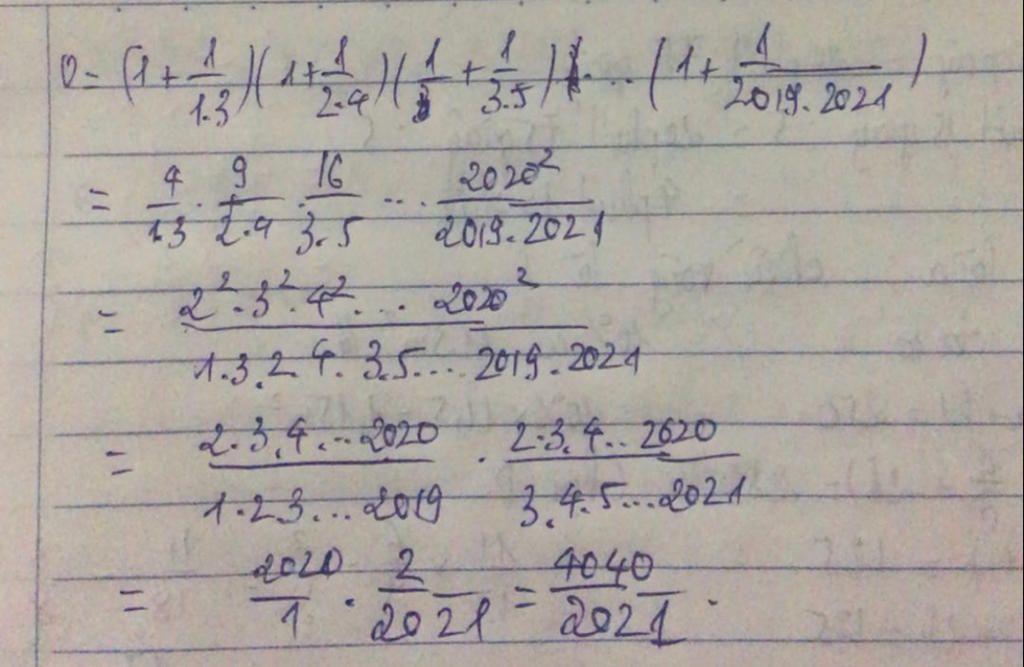 D = (1 + 1/1.3)(1 + 1/2.4)(1 + 1/3.5) ... (1 + 1/2019.2021)
= 4/1.3 . 9/2.4 . 16/3.5 ... 2020²/2019.2021
= 2².3².4². ... 2020²/1.3.2.4.3.5...2019.2021
= 2.3.4...2020/1.2.3...2019 . 2.3.4...2020/3.4.5...2021
= 2020/1 . 2/2021 = 4040/2021.